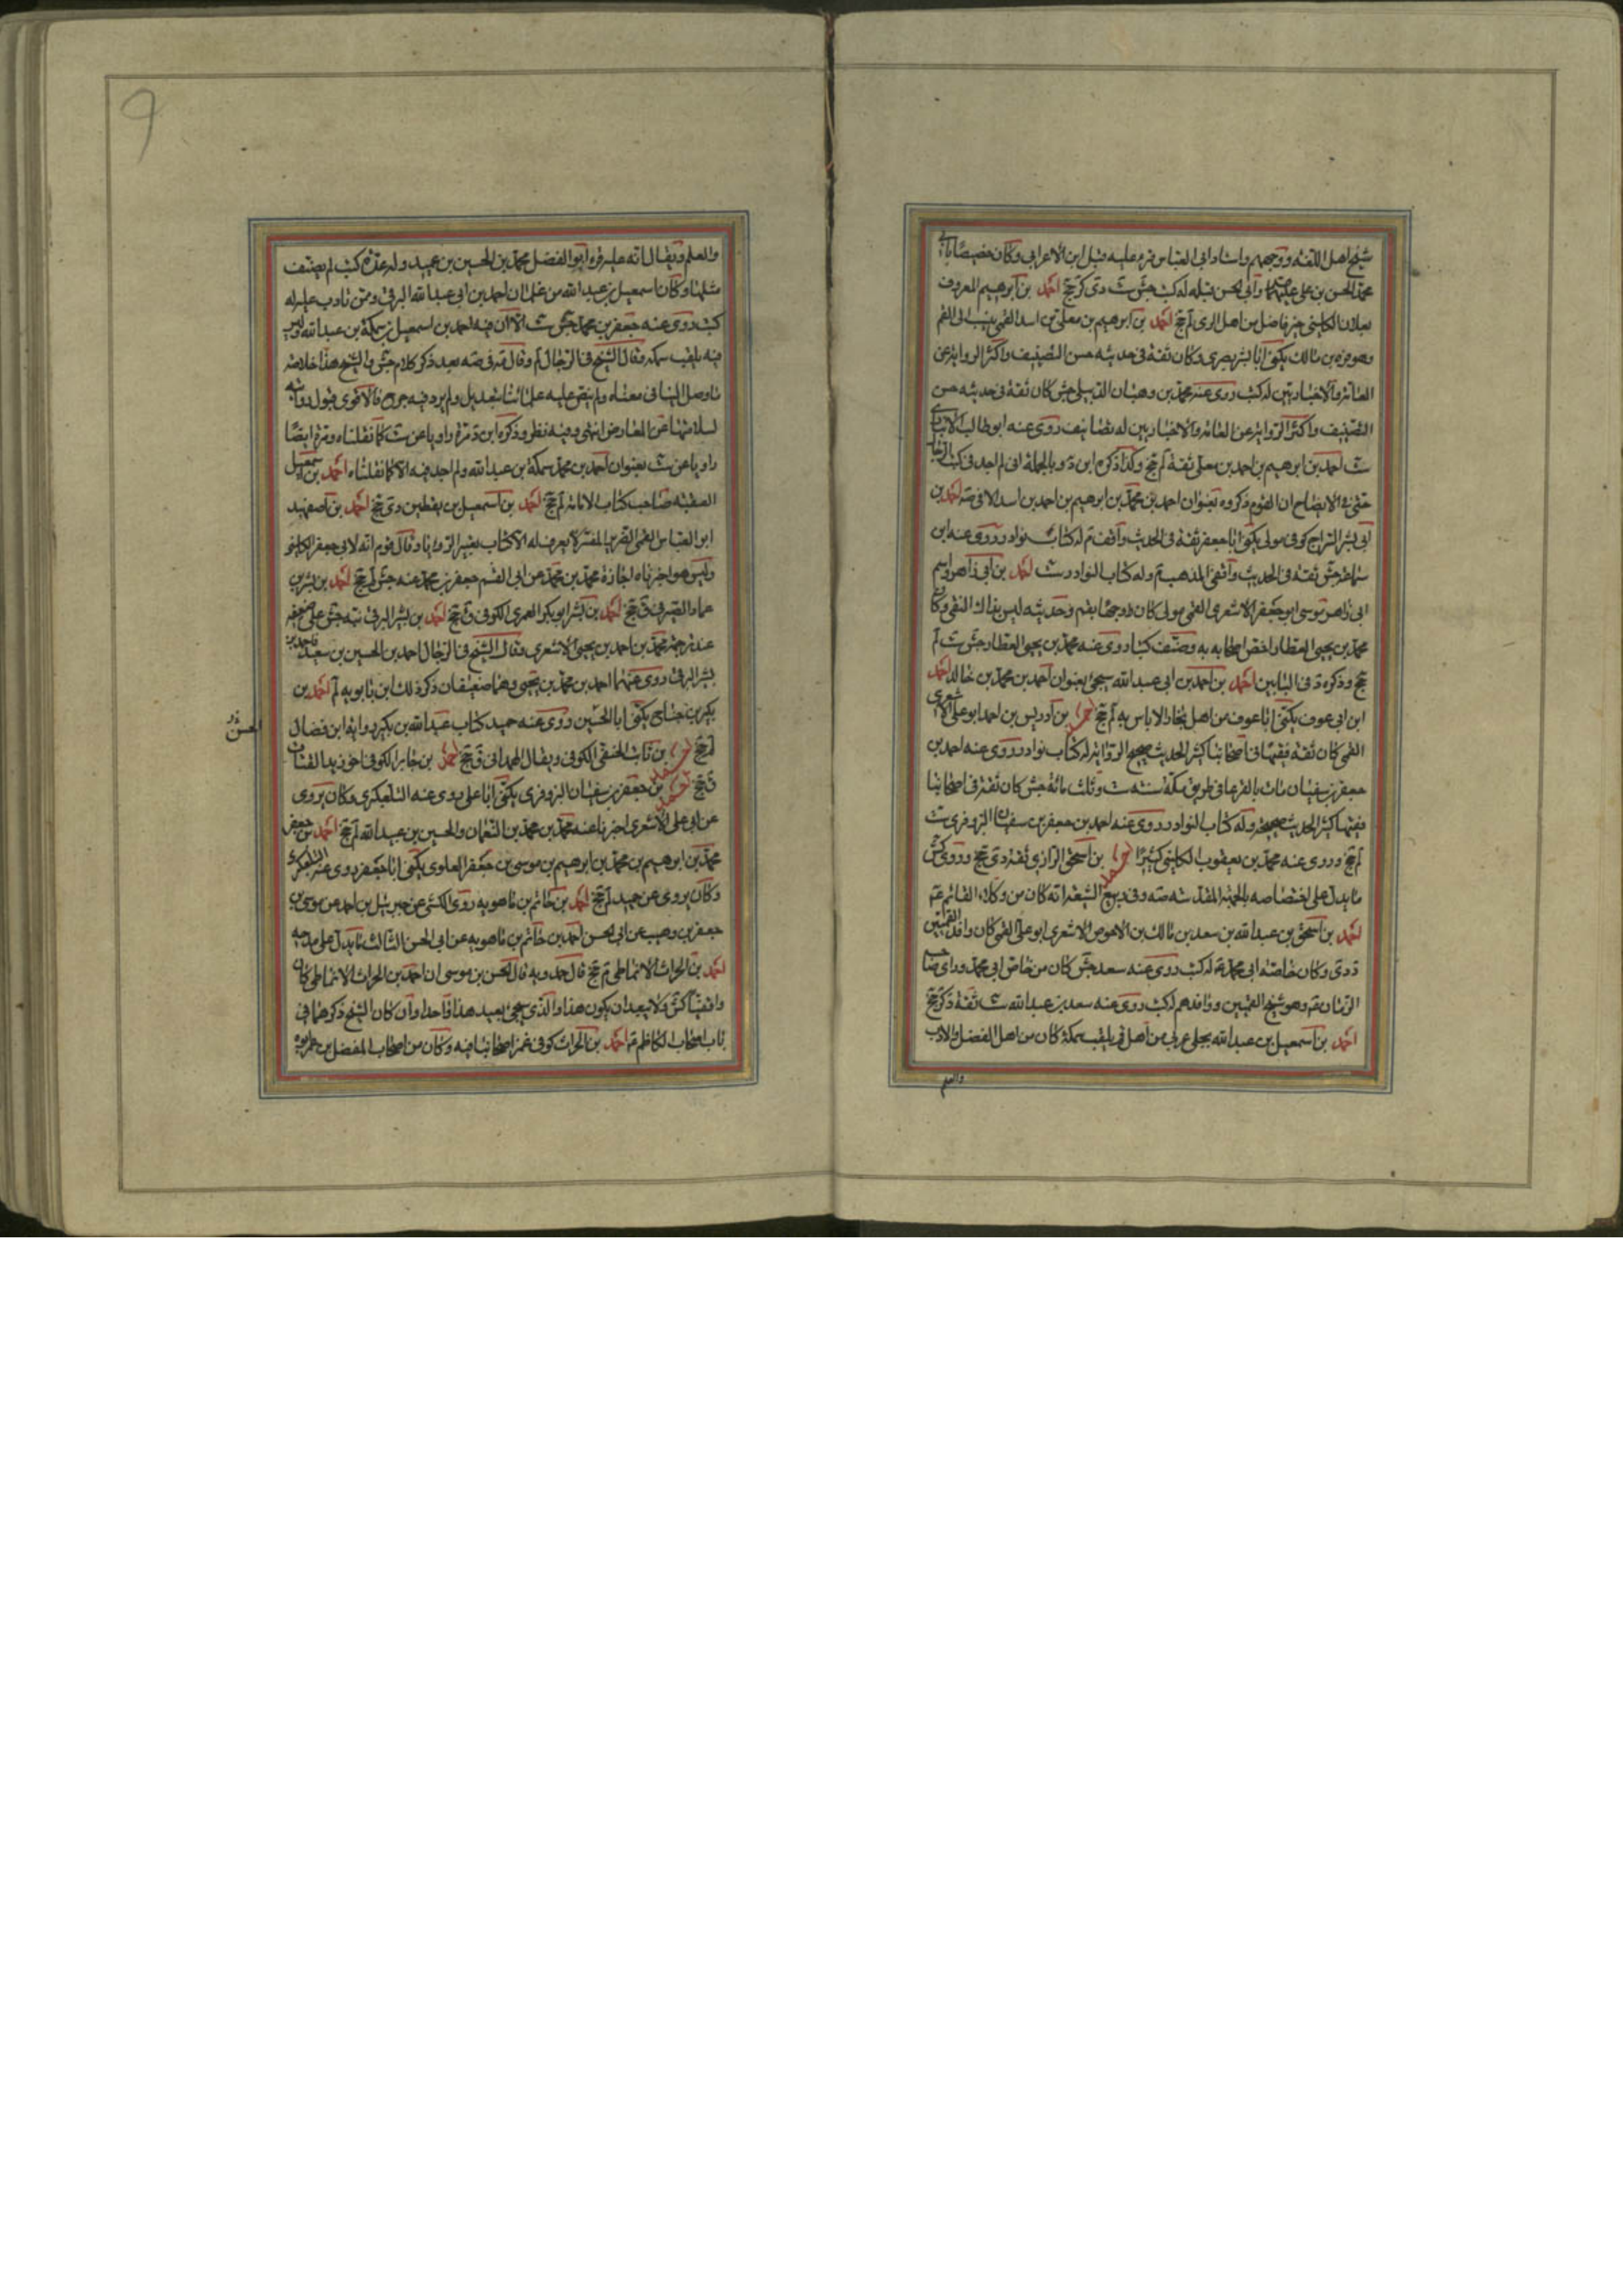 شيخ اهل اللغة ووجههم واستاد ابى العباس قرء عليه قبل ابن الاعرابى وكان خصيصا بابى
محمد الحسن بن على عليهما وابى الحسن قبله له كتب جش ست دى كر جخ احمد بن ابرهيم المعروف
بعلان الكلينى خير فاضل من اهل الرى لم جخ احمد بن ابرهيم بن معلى بن اسد العمى ينسب الى العم
وهو مرة بن مالك يكنى ابا بشر بصرى وكان ثقة فى حديثه حسن التصنيف واكثر الرواية عن
العامة والاخباريين له كتب روى عنه محمد بن وهبان الدبيلى جش كان ثقة فى حديثه حسن
التصنيف واكثر الرواية عن العامة والاخباريين له تصانيف روى عنه ابو طالب الانبارى
ست احمد بن ابرهيم بن احمد بن معلى ثقة لم جخ وكذا ذكره ابن د وبالجملة انى لم اجد فى كتب الرجال
حتى فى الايضاح ان القوم ذكروه بعنوان احمد بن محمد بن ابرهيم بن احمد بن اسد الا فى صه احمد بن
ابى بشر السراج كوفى مولى يكنى ابا جعفر ثقة فى الحديث واقف م له كتاب نوادر روى عنه ابن
سماعة جش ثقة فى الحديث واقفى المذهب م وله كتاب النوادر ست احمد بن ابى زاهر واسم
ابى زاهر موسى ابو جعفر الاشعرى القمى مولى كان وجها بقم وحديثه ليس بذاك النقى وكان
محمد بن يحيى العطار اخص اصحابه به وصنف كتبا روى عنه محمد بن يحيى العطار جش ست لم
جخ وذكره د فى البابين احمد بن احمد بن ابى عبد الله سيجئ بعنوان احمد بن محمد بن خالد احمد
ابن ابى عوف يكنى ابا عوف من اهل بخارا لا باس به لم جخ احمد بن ادريس بن احمد ابو على الاشعرى
القمى كان ثقة فقيها فى اصحابنا كثير الحديث صحيح الرواية له كتاب نوادر روى عنه احمد بن
جعفر بن سفيان مات بالقرعا فى طريق مكة سنة ست وثلث مائة جش كان ثقة فى اصحابنا
فقيها كثير الحديث صحيحه وله كتاب النوادر روى عنه احمد بن جعفر بن سفيان البزوفرى ست
لم جخ وروى عنه محمد بن يعقوب الكلينى كثيرا احمد بن اسحق الرازى ثقة دى جخ وروى كش
ما يدل على اختصاصه بالجهة المقدسة صه وفى ربيع الشيعة انه كان من وكلاء القائم ع
احمد بن اسحق بن عبد الله بن سعد بن مالك بن الاحوص الاشعرى ابو على القمى كان وافد القميين
د دى وكان خاصة ابى محمد ع له كتب روى عنه سعد جش كان من خاص ابى محمد وراى صاحب
الزمان ع وهو شيخ القميين ووافدهم له كتب روى عنه سعد بن عبد الله ست ثقة د كر جخ
احمد بن اسمعيل بن عبد الله بجلى عربى من اهل قم يلقب سمكة كان من اهل الفضل والادب
والعلم
والعلم ويقال انه عليه قرء ابو الفضل محمد بن الحسين بن عميد وله عدة كتب لم يصنف
مثلها وكان اسمعيل بن عبد الله من غلمان احمد بن ابى عبد الله البرقى وممن تادب عليه له
كتب روى عنه جعفر بن محمد جش ست الا ان فيه احمد بن اسمعيل بن سمكة بن عبد الله وليس
فيه يلقب سمكه وقال الشيخ فى الرجال لم وقال مه فى صه بعد ذكر كلام جش والشيخ هذا خلاصة
ما وصل الينا فى معناه ولم ينص عليه علمائنا بتعديل ولم يرد فيه جرح فالاقوى قبول روايته
لسلامتها عن المعارض انتهى وفيه نظر وذكره ابن د مرة راويا عن ست كما نقلناه ومرة ايضا
راويا عن ست بعنوان احمد بن محمد سمكة بن عبد الله ولم اجد فيه الا كما نقلناه احمد بن اسمعيل
الفقيه صاحب كتاب الامامة لم جخ احمد بن اسمعيل بن يقطين دى جخ احمد بن اصفهبد
ابو العباس القمى الضرير المفسر لا يعرف له الا كتاب تعبير الرؤيا وقال قوم انه لابى جعفر الكلينى
وليس هو اخبرناه اجازة محمد بن محمد عن ابى القسم جعفر بن محمد عنه جش لم جخ احمد بن بشر بن
عمار الصيرفى ق جخ احمد بن بشر ابو بكر العمرى الكوفى ق جخ احمد بن بشر البرقى نبه جش على ضعفه
عند ترجمة محمد بن احمد بن يحيى الاشعرى وقال الشيخ فى الرجال احمد بن الحسين بن سعيد واحمد بن
بشر البرقى روى عنهما احمد بن محمد بن يحيى وهما ضعيفان ذكر ذلك ابن بابويه لم احمد بن
بكر بن جناح يكنى ابا الحسين روى عنه حميد كتاب عبد الله بن بكير رواية ابن فضال
لم جخ احمد بن ثابت الحنفى الكوفى ويقال الهمدانى ق جخ احمد بن جابر الكوفى اخو زيد القتات
ق جخ احمد بن جعفر بن سفيان البزوفرى يكنى ابا على روى عنه التلعكبرى وكان يروى
عن ابى على الاشعرى اخبرنا عنه محمد بن محمد بن النعمان والحسين بن عبيد الله لم جخ احمد بن جعفر
محمد بن ابرهيم بن محمد بن ابرهيم بن موسى بن جعفر العلوى يكنى ابا جعفر روى عنه التلعكبرى
وكان يروى عن حميد لم جخ احمد بن حاتم بن ماهويه روى الكشى عن جبرئيل بن احمد عن موسى بن
جعفر بن وهب عن ابى الحسن احمد بن حاتم بن ماهويه عن ابى الحسن الثالث ما يدل على مدحه
احمد بن الحراث الانماطى م جخ قال حمدويه قال الحسن بن موسى ان احمد بن الحراث الانماطى كان
واقفيا كش ولا يبعد ان يكون هذا والذى سيجئ بعيد هذا واحدا وان كان الشيخ ذكرهما فى
باب اصحاب الكاظم ع احمد بن الحراث كوفى غمز اصحابنا فيه وكان من اصحاب المفضل بن عمر ابوه